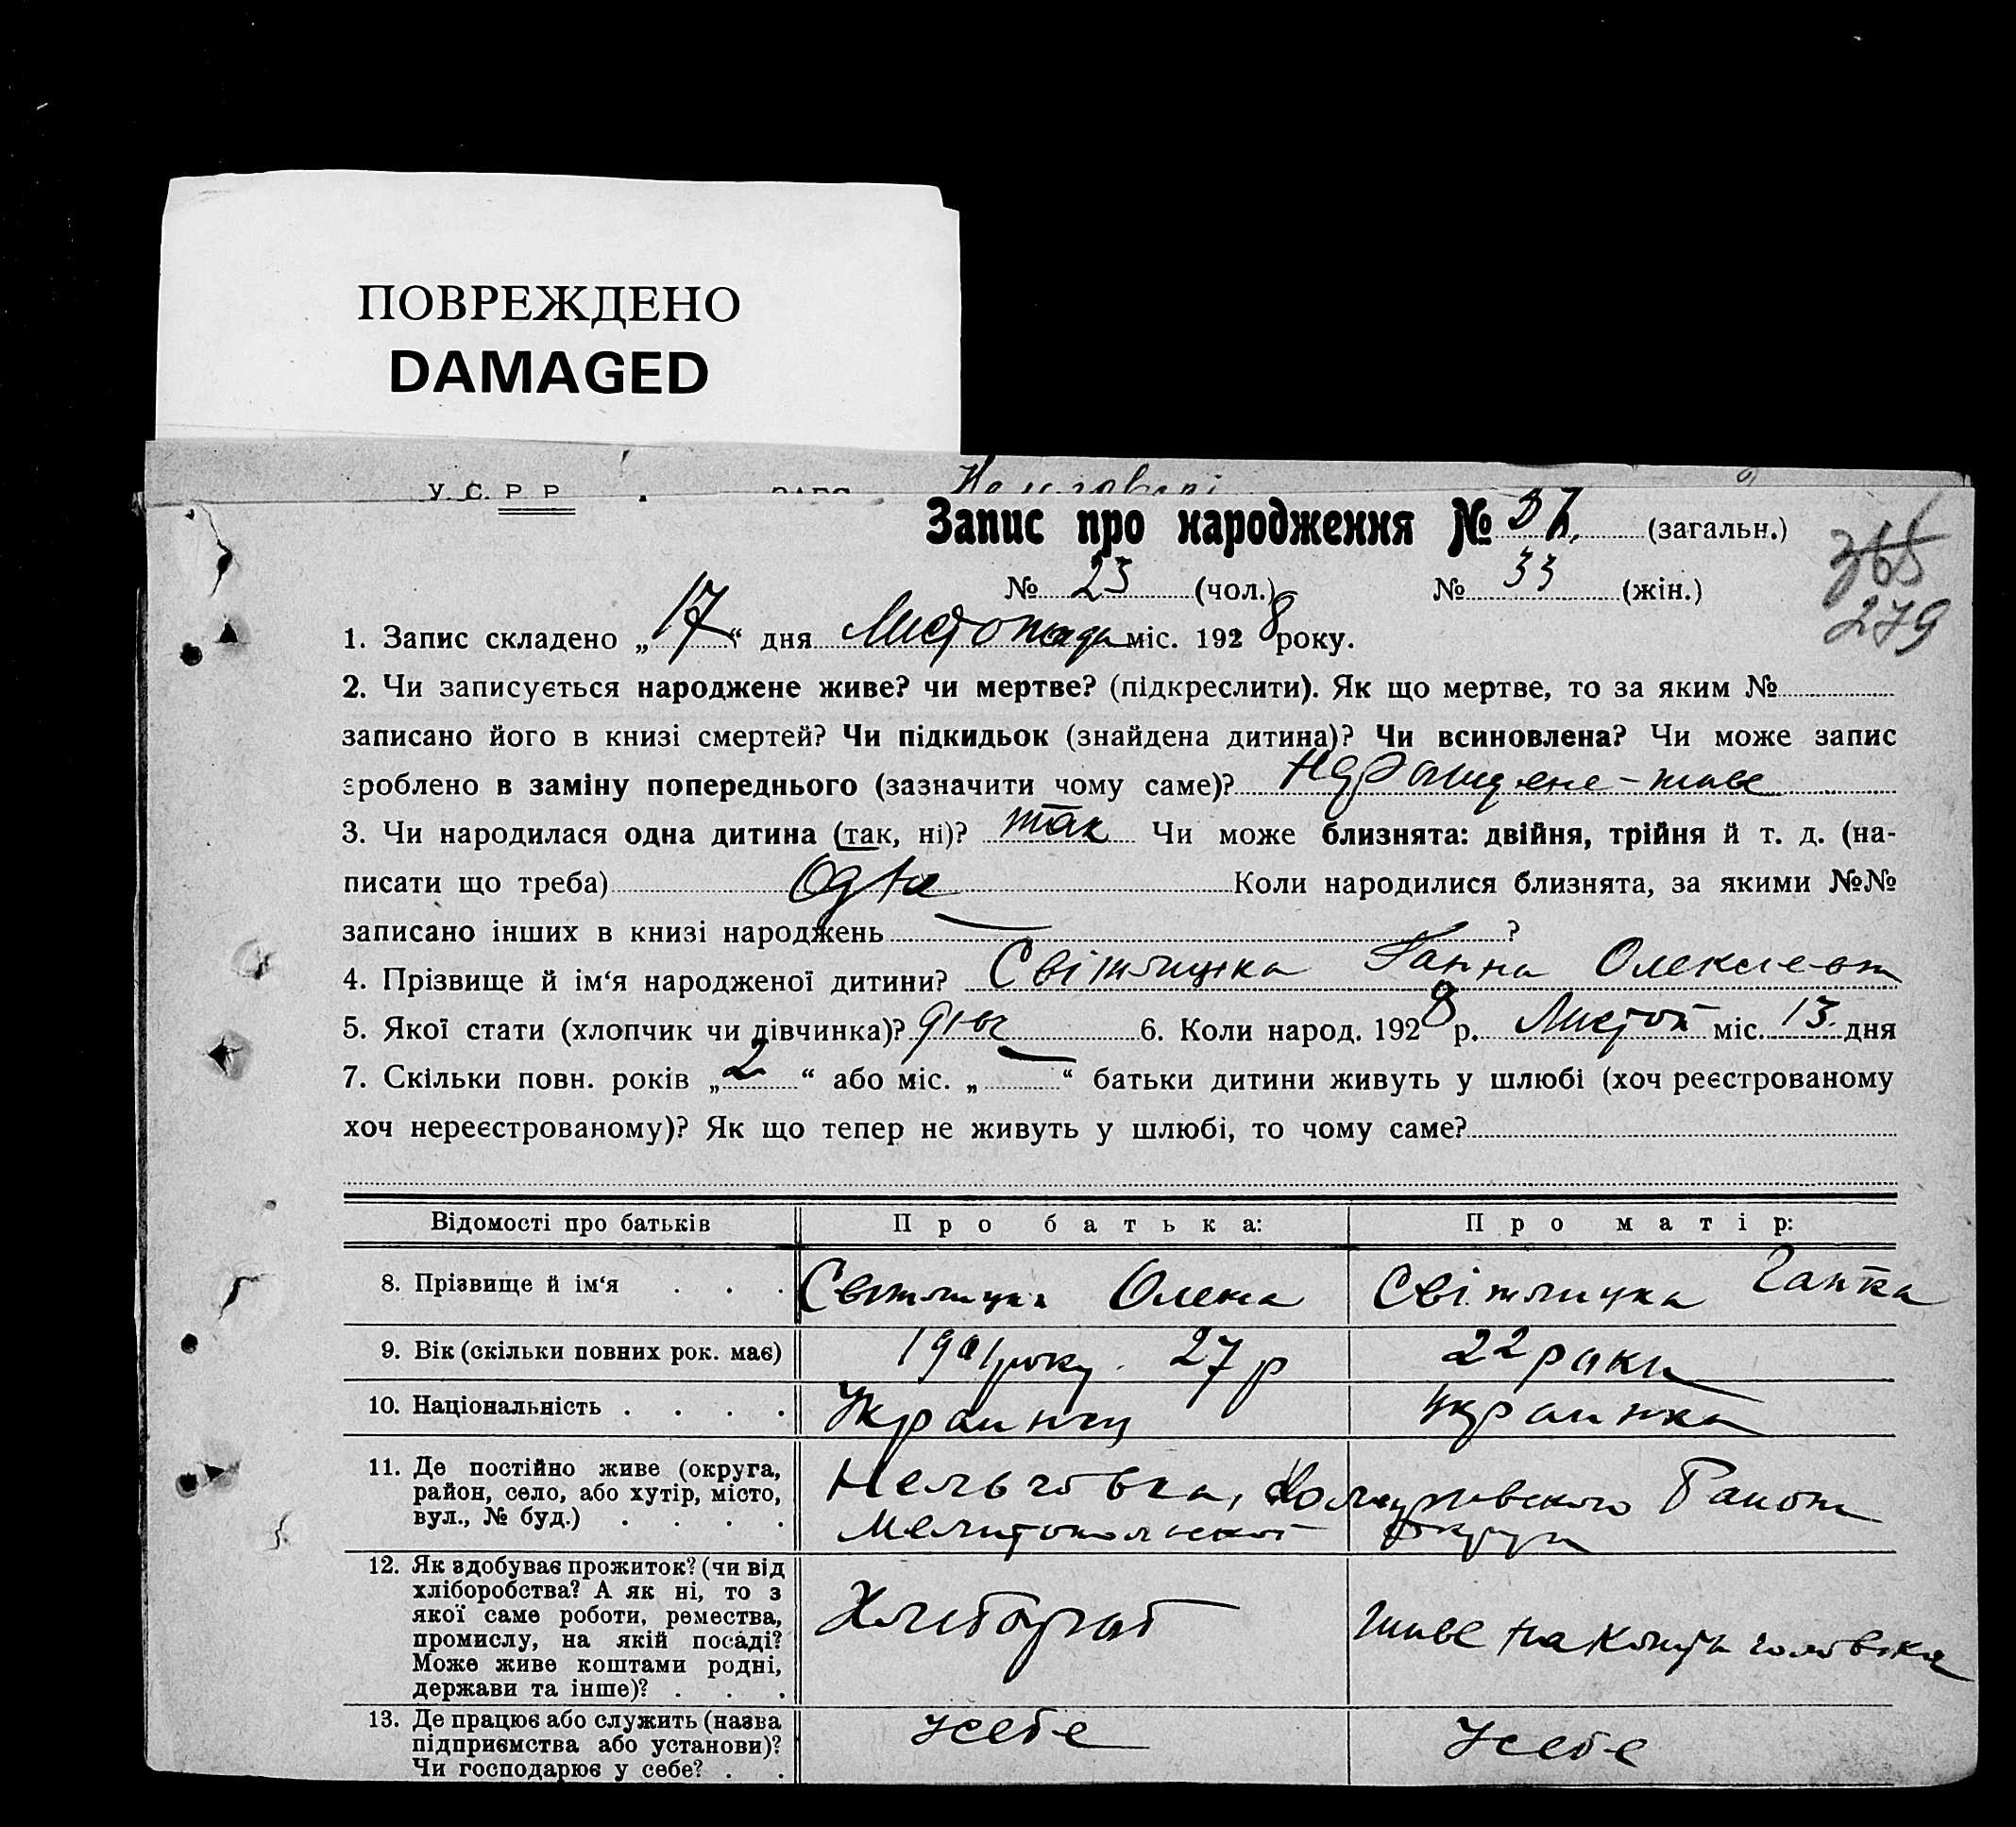 ПОВРЕЖДЕНО
DAMAGED
У. С. Р. Р.
Запис про народження № (загальн.)
365
№ 23 (чол.) № 33 (жін.)
279
1. Запис складено „17“ дня Листопада міс. 1928 року.
2. Чи записується народжене живе? чи мертве? (підкреслити). Як що мертве, то за яким №
записано його в книзі смертей? Чи підкидьок (знайдена дитина)? Чи всиновлена? Чи може запис
зроблено в заміну попереднього (зазначити чому саме)? живе
3. Чи народилася одна дитина (так, ні)? так Чи може близнята: двійня, трійня й т. д. (на-
писати що треба) Одна Коли народилися близнята, за якими №№
записано інших в книзі народжень ?
4. Прізвище й ім‘я народженої дитини? Світлицка Ганна
5. Якої стати (хлопчик чи дівчинка)? дівч 6. Коли народ. 1928 р. Листоп міс. 13 дня
7. Скільки повн. років „2“ або міс. „ “ батьки дитини живуть у шлюбі (хоч реєстрованому
хоч нереєстрованому)? Як що тепер не живуть у шлюбі, то чому саме?
Відомості про батьків Про батька: Про матір:
8. Прізвище й ім‘я . . . Олекса Світлицка Ганна
9. Вік (скільки повних рок. має) 1901 року. 27 р 22 роки
10. Національність . . . . Украинец украинка
11. Де постійно живе (округа,
район, село, або хутір, місто,
вул., № буд.) . . . . Району
Мелитопольской округи
12. Як здобуває прожиток? (чи від
хліборобства? А як ні, то з
якої саме роботи, ремества,
промислу, на якій посаді?
Може живе коштами родні,
держави та інше)? . . . Хлибороб живе на кошти чоловіка
13. Де працює або служить (назва
підприємства або установи)?
Чи господарює у себе? . . у себе у себе